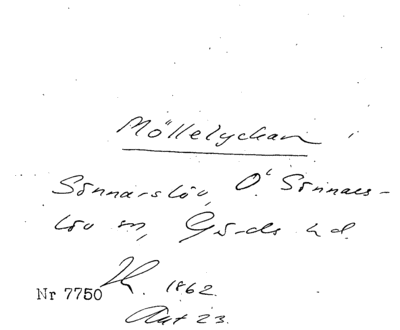 Möllelyckan
Sönnarslöv, Ö. Sönnars-
löv sn, Gärds hd.
1862.
Nr 7750
Akt 23.